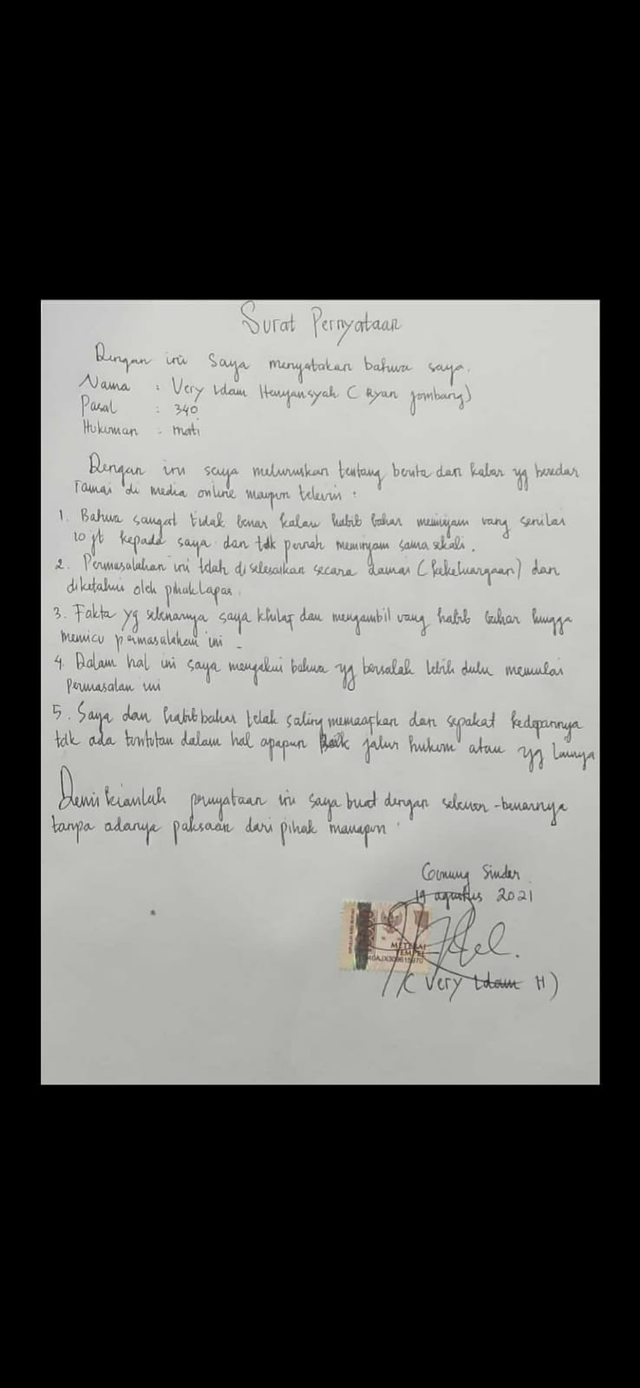 Surat Pernyataan
Dengan ini saya menyatakan bahwa saya.
Nama : Very Idam Henyansyah ( Ryan Jombang)
Pasal : 340
Hukuman : mati
Dengan ini saya meluruskan tentang berita dan kabar yg beredar
ramai di media online maupun televisi :
1. Bahwa sangat tidak benar kalau habib bahar meminjam uang senilai
10 jt kepada saya dan tdk pernah meminjam sama sekali.
2. Permasalahan ini telah diselesaikan secara damai (kekeluargaan) dan
diketahui oleh pihak lapas.
3. Fakta yg sebenarnya saya khilaf dan mengambil uang habib bahar hingga
memicu permasalahan ini -
4. Dalam hal ini saya mengakui bahwa yg bersalah lebih dulu memulai
permasalan ini
5. Saya dan habib bahar telah saling memaafkan dan sepakat kedepannya
tdk ada tuntutan dalam hal apapun Baik jalur hukum atau yg lainya
Demikianlah pernyataan ini saya buat dengan sebenar-benarnya
tanpa adanya paksaan dari pihak manapun.
Gunung Sindur
19 agustus 2021
METERAI
TEMPEL
( Very Idam H)